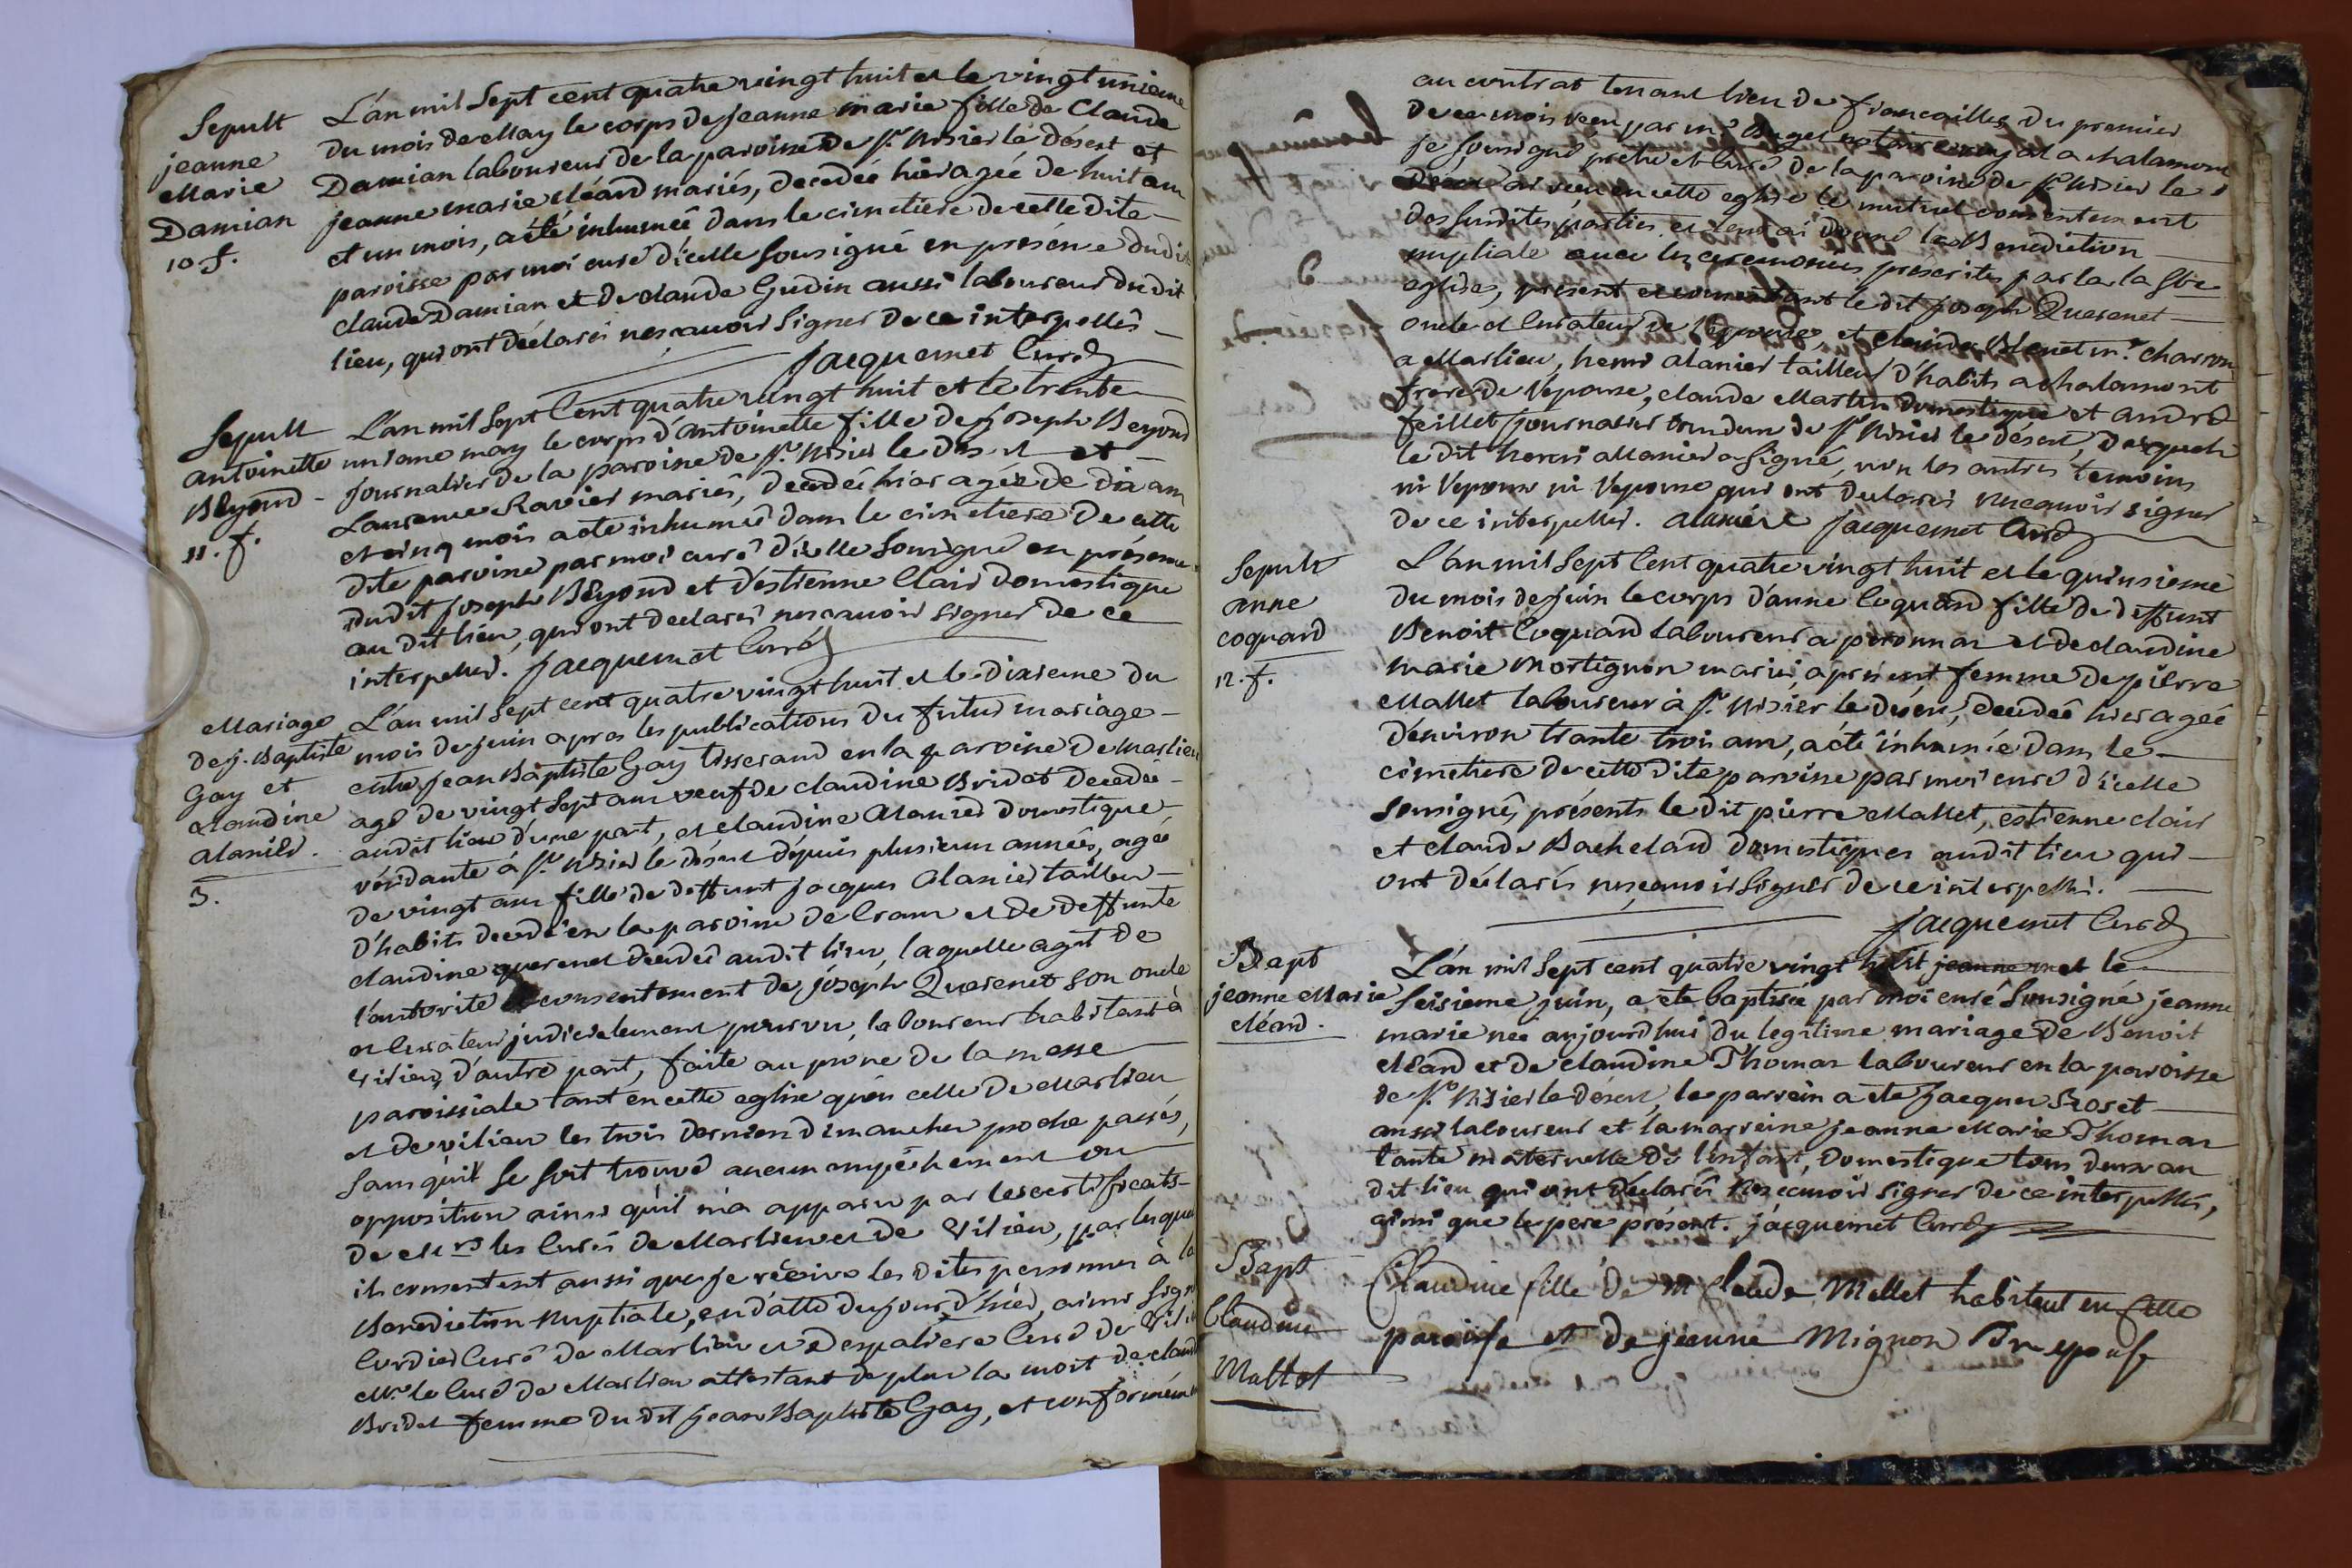 Sepult
jeanne
Marie
Damian
10 f.
L'an mil Sept cent quatre vingt huit et le vingt unieme
du mois de May le corps de jeanne marie fille de Claude
Damian laboureur de la paroisse de St. Nisier le désert et
jeanne marie Méard mariés, decedée hier agée de huit ans
et un mois, a été inhumée dans le cimetiere de cette dite
paroisse par moi curé d'icelle Sousigné en présence dudit
claude Damian et de claude Gudin aussi laboureur dudit
lieu, qui ont déclarés nesçavoir Signer de ce interpellés
Jacquemet Curé
Sepult
antoinette
Beyond
11. f.
L'an mil Sept Cent quatre vingt huit et le trente
unieme may le corps d'antoinette fille de joseph Beyond
journalier de la paroisse de St. Nisier le désert et
Laurence Ravier mariés, decedée hier agée de dix ans
et cinq mois a été inhumée dans le cimetiere de cette
dite paroisse par moi curé d'icelle Sousigné en présence
dudit joseph Beyond et d'estienne Clair domestique
au dit lieu, qui ont declarés nescavoir signer de ce
interpellés. Jacquemet Curé
Mariage
de j. Baptiste
Gay et
claudine
alanier.
3.
L'an mil Sept cent quatre vingt huit et le dixieme du
mois de juin apres les publications du futur mariage
entre jean Baptiste Gay tisserand en la paroisse de Marlieu
agé de vingt Sept ans veuf de claudine Bridet decedée
audit lieu d'une part, et claudine alanier domestique
résidante à St. Nisier le désert depuis plusieurs années, agée
de vingt ans fille de deffunt jacques alanier tailleur
d'habits decedé en la paroisse de Crans et de deffunte
claudine querenet decedée audit lieu, laquelle agit de
l'autorité et consentement de joseph Querenet son oncle
et curateur judicielement pourvu laboureur habitant à
vilieu, d'autre part, faite au prone de la messe
paroissiale tant en cette eglise qu'en celle de Marlieu
et de vilieu les trois derniers dimanches proche passés,
Sans qu'il Se Soit trouvé aucun empêchement ou
opposition ainsi qu'il m'a apparu par les certificats
de Mrs les Curés de Marlieu et de vilieu, par lesquels
ils consentent aussi que je reçoive les dites personnes à la
Benediction Nuptiale, en datte du jour d'hier, ainsi Signé
Curé de Marlieu et despaliere Curé de Vilieu
Mr. le Curé de Marlieu attestant de plus la mort de claudine
Bridet femme du dit jean Baptiste Gay, et conformément
au contrat tenant lieu de fiancailles, du premier
de ce mois reçu par me. Buget notaire royal a chalamont
je sousigné prêtre et Curé de la paroisse de St. Nisier le
désert ai reçu en cette eglise le mutuel consentement
des Susdites parties, et leur ai donné la Benediction
nuptiale avec les ceremonies préscrites par la la Ste
eglise, présent et consentant le dit joseph Querenet
oncle et Curateur de l'epouse, et claude Blenet me. charron
a Marlieu, henri alanier tailleur d'habits a chalamont
frere de l'epouse, claude Martin domestique et andré
feillet journalier tous deux de St. Nisier le désert, desquels
le dit henri alanier a Signé, non les autres temoins
ni l'epoux ni l'epouse qui ont declarés nescavoir signer
de ce interpellés. alanier Jacquemet Curé
Sepult
anne
coquard
12. f.
L'an mil Sept Cent quatre vingt huit et le quinsieme
du mois de juin le corps d'anne Coquard fille de deffunt
Benoit Coquard laboureur a peronnas et de claudine
marie Mortignon mariés, a présent femme de pierre
Mallet laboureur à St. Nisier le désert, decedée hier agée
d'environ trante trois ans, a été inhumée dans le
cimetiere de cette dite paroisse par moi curé d'icelle
sousigné, présents le dit pierre Mallet, estienne clair
et claude Bachelard domestiques audit lieu qui
ont déclarés nesçavoir Signer de ce interpellés.
Jacquemet Curé
Bapt
jeanne Marie
Méard.
L'an mil Sept cent quatre vingt huit et le
Seisieme juin, a été baptisée par moi curé Sousigné jeanne
marie née aujourd'hui du legitime mariage de Benoit
Méard et de claudine Thomas laboureur en la paroisse
de St. Nisier le désert, le parrein a été jacques Roset
aussi laboureur et la marreine jeanne Marie Thomas
tante maternelle de l'enfant, domestique tous deux au
dit lieu qui ont déclarés Nescavoir signer de ce interpellés,
ainsi que le pere présent. jacquemet Curé
Bapt
Claudine
Mallet
Claudine fille de M Claude Mallet habitant en cette
paroisse et de jeanne Mignon Son epouse